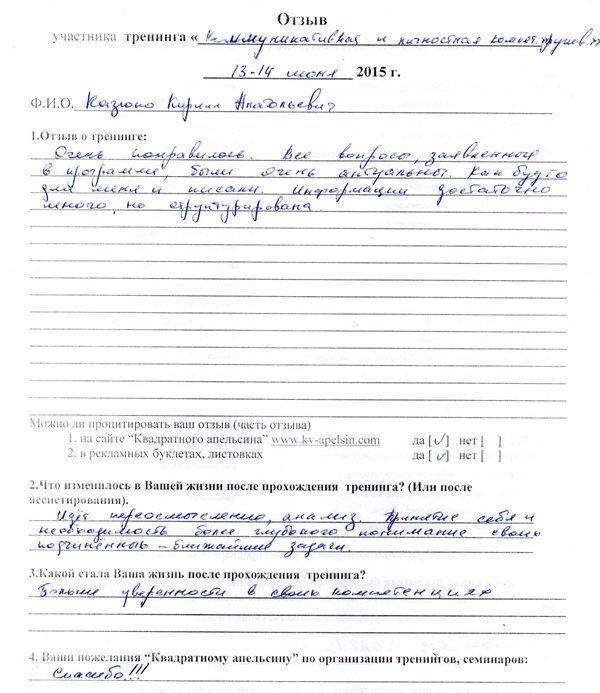 Отзыв
участника тренинга « Коммуникативная и личностная компет.
13-14 июня 2015 г.
Ф.И.О. Казюно Кирилл Анатольевич
1.Отзыв о тренинге:
Очень понравилось. Все вопросы, заявленные
в программе, были очень актуальны. Как будто
для меня и писали. Информации достаточно
много, но структурирована.
Можно ли процитировать ваш отзыв (часть отзыва)
1. на сайте “Квадратного апельсина” www.kv-apelsin.com да [✓] нет [ ]
2. в рекламных буклетах, листовках да [✓] нет [ ]
2.Что изменилось в Вашей жизни после прохождения тренинга? (Или после
ассистирования).
Идёт переосмысление, анализ. Принятие себя и
необходимость более глубокого понимание своих
подчинённых – ближайшие задачи.
3.Какой стала Ваша жизнь после прохождения тренинга?
Больше уверенности в своих компетенциях
4. Ваши пожелания “Квадратному апельсину” по организации тренингов, семинаров:
Спасибо!!!